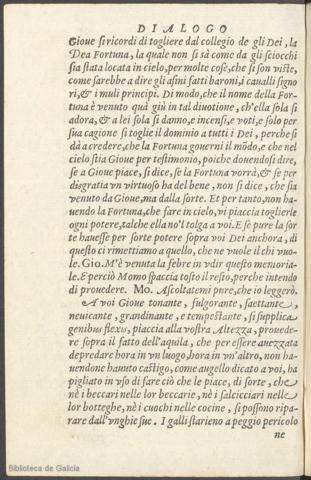 DIALOGO
Gioue si ricordi di togliere dal collegio de gli Dei, la
Dea Fortuna, la quale non si sà come da gli sciocchi
sia stata locata in cielo, per molte cose, che si son viste,
come sarebbe a dire gli asini fatti baroni, i caualli signo
ri, & i muli principi. Di modo, che il nome della For-
tuna è venuto quà giù in tal diuotione, ch'ella sola si
adora, & a lei sola si danno, e incensi, e voti, e solo per
sua cagione si toglie il dominio a tutti i Dei, perche si
dà a credere, che la Fortuna gouerni il mōdo, e che nel
cielo stia Gioue per testimonio, poiche douendosi dire,
se a Gioue piace, si dice, se la Fortuna vorrà, & se per
disgratia vn virtuoso ha del bene, non si dice, che sia
venuto da Gioue, ma dalla sorte. Et per tanto, non ha-
uendo la Fortuna, che fare in cielo, vi piaccia toglierle
ogni potere, talche ella no'l tolga a voi. E se pure la sor
te hauesse per sorte potere sopra voi Dei anchora, di
questo ci rimettiamo a quello, che ne vuole il chi vuo-
le. Gio. M'è venuta la febre in vdir questo memoria-
le. E perciò Momo spaccia tosto il resto, perche intendo
di prouedere. Mo. Ascoltatemi pure, che io leggerò.
A voi Gioue tonante, fulgorante, saettante,
neuicante, grandinante, e tempestante, si supplica
genibus flexis, piaccia alla vostra Altezza, prouede-
re sopra il fatto dell'aquila, che per essere auezzata
depredare hora in vn luogo, hora in vn'altro, non ha-
uendone hauuto castigo, come augello dicato a voi, ha
pigliato in vso di fare ciò che le piace, di sorte, che
nè i beccari nelle lor beccarie, nè i salcicciari nelle
lor botteghe, nè i cuochi nelle cocine, si possono ripa-
rare dall'vnghie sue. I galli starieno a peggio pericolo
ne
Biblioteca de Galicia